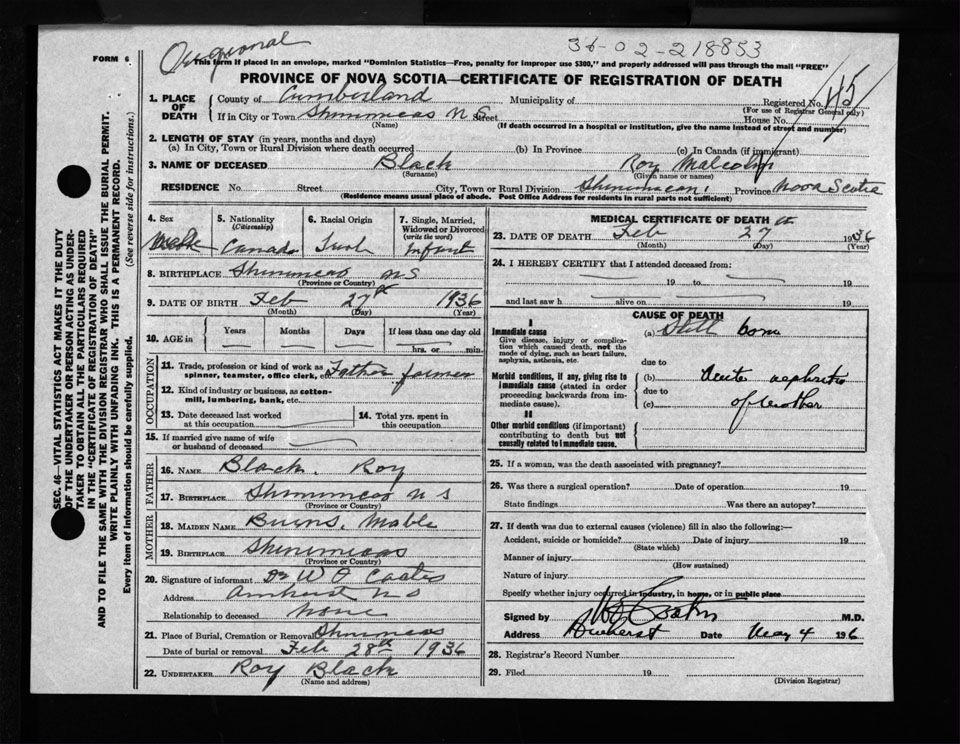 FORM 6
Original
36-02-218853
This form if placed in an envelope, marked "Dominion Statistics—Free, penalty for improper use $300," and properly addressed will pass through the mail "FREE"
PROVINCE OF NOVA SCOTIA—CERTIFICATE OF REGISTRATION OF DEATH
SEC. 46—VITAL STATISTICS ACT MAKES IT THE DUTY
OF THE UNDERTAKER OR PERSON ACTING AS UNDER-
TAKER TO OBTAIN ALL THE PARTICULARS REQUIRED
IN THE "CERTIFICATE OF REGISTRATION OF DEATH"
AND TO FILE THE SAME WITH THE DIVISION REGISTRAR WHO SHALL ISSUE THE BURIAL PERMIT.
WRITE PLAINLY WITH UNFADING INK. THIS IS A PERMANENT RECORD.
Every item of Information should be carefully supplied. (See reverse side for instructions.)
1. PLACE OF DEATH
County of Cumberland Municipality of Registered No. 45
(For use of Registrar General only)
If in City or Town Shinimicas N S Street House No.
(Name) (If death occurred in a hospital or institution, give the name instead of street and number)
2. LENGTH OF STAY (in years, months and days)
(a) In City, Town or Rural Division where death occurred (b) In Province (c) In Canada (if immigrant)
3. NAME OF DECEASED Black Roy Malcolm
(Surname) (Given name or names)
RESIDENCE No. Street City, Town or Rural Division Shinimicas Province Nova Scotia
(Residence means usual place of abode. Post Office Address for residents in rural parts not sufficient)
4. Sex
5. Nationality (Citizenship) Canada
6. Racial Origin
7. Single, Married, Widowed or Divorced (write the word) Infant
8. BIRTHPLACE Shinimicas N S
(Province or Country)
9. DATE OF BIRTH Feb 27th 1936
(Month) (Day) (Year)
10. AGE in Years Months Days If less than one day old
hrs. or min.
OCCUPATION
11. Trade, profession or kind of work as spinner, teamster, office clerk, etc. Father farmer
12. Kind of industry or business, as cotton-mill, lumbering, bank, etc.
13. Date deceased last worked at this occupation
14. Total yrs. spent in this occupation
15. If married give name of wife or husband of deceased
FATHER
16. NAME Black, Roy
17. BIRTHPLACE Shinimicas N S
(Province or Country)
MOTHER
18. MAIDEN NAME Burns, Mable
19. BIRTHPLACE Shinimicas
(Province or Country)
20. Signature of informant Dr W O Coates
Address Amherst N S
Relationship to deceased None
21. Place of Burial, Cremation or Removal Shinimicas
Date of burial or removal Feb 28th 1936
22. UNDERTAKER Roy Black
(Name and address)
MEDICAL CERTIFICATE OF DEATH
23. DATE OF DEATH Feb 27th 1936
(Month) (Day) (Year)
24. I HEREBY CERTIFY that I attended deceased from:
19 to 19
and last saw h alive on 19
CAUSE OF DEATH
I
Immediate cause
Give disease, injury or complication which caused death, not the mode of dying, such as heart failure, asphyxia, asthenia, etc.
(a) Still born
due to
Morbid conditions, if any, giving rise to immediate cause (stated in order proceeding backwards from immediate cause).
(b) Acute nephritis
due to
(c) of Mother
II
Other morbid conditions (if important) contributing to death but not causally related to immediate cause.
25. If a woman, was the death associated with pregnancy?
26. Was there a surgical operation? Date of operation 19
State findings Was there an autopsy?
27. If death was due to external causes (violence) fill in also the following:—
Accident, suicide or homicide? Date of injury 19
(State which)
Manner of injury
(How sustained)
Nature of injury
Specify whether injury occurred in industry, in home, or in public place
Signed by M.D.
Address Amherst Date May 4 1936
28. Registrar's Record Number
29. Filed 19
(Division Registrar)